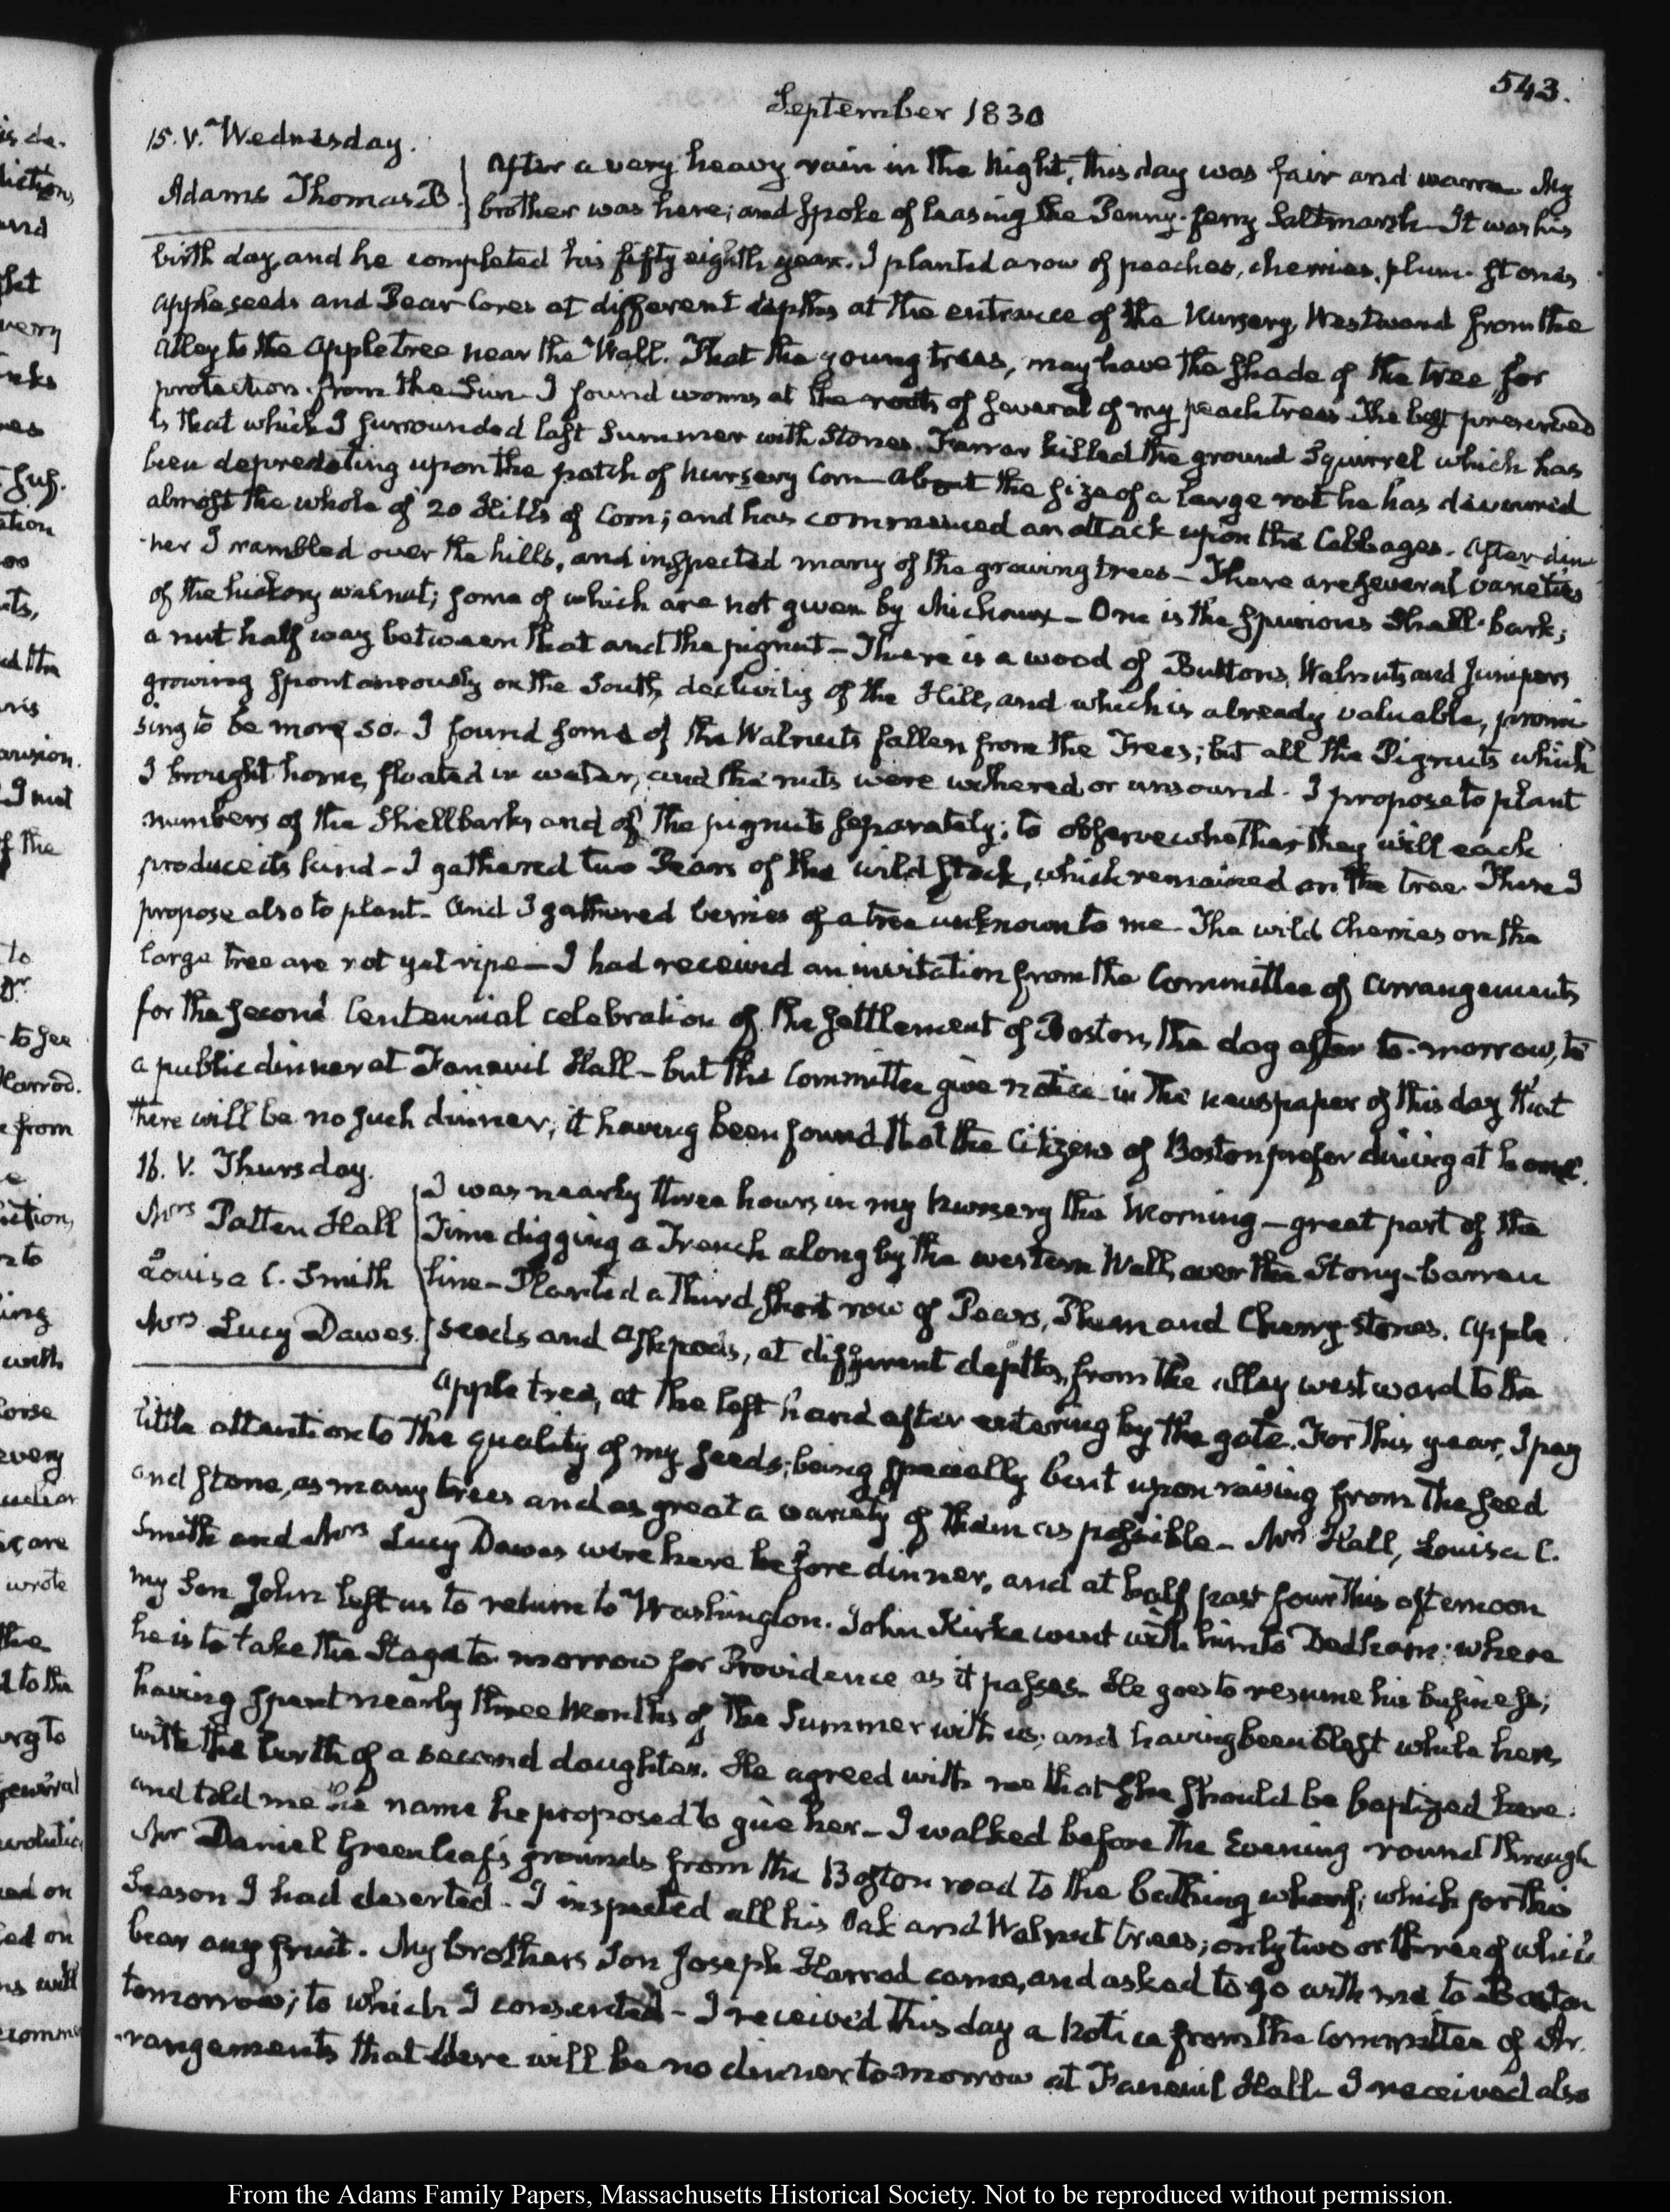 543.
September 1830
15. V. Wednesday.
Adams Thomas B.
After a very heavy rain in the Night, this day was fair and warm. My
brother was here; and spoke of leasing the Penny-ferry Saltmarsh. It was his
birth day, and he completed his fifty eighth year. I planted a row of peaches, cherries, plum-stones
apple seeds and Pear Cores at different depths at the entrance of the Nursery, Westward from the
alley to the apple tree near the Wall. That the young trees, may have the shade of the tree for
protection from the Sun. I found worms at the roots of several of my peach trees. The best preserved
is that which I surrounded last Summer with Stones. Farrar killed the ground Squirrel which has
been depredating upon the patch of nursery Corn—about the size of a large rat he has devoured
almost the whole of 20 Hills of Corn; and has commenced an attack upon the Cabbages. After din-
-ner I rambled over the hills, and inspected many of the growing trees—There are several varieties
of the hickory walnut; some of which are not given by Michaux—One is the spurious Shall-bark;
a nut half way between that and the pignut—There is a wood of Buttons, Walnuts and Junipers
growing spontaneously on the South declivity of the Hill, and which is already valuable, promi-
sing to be more so. I found some of the Walnuts fallen from the Trees; but all the Pignuts which
I brought home, floated in water, and the nuts were withered or unsound. I propose to plant
numbers of the Shellbarks and of the pignuts separately; to observe whether they will each
produce its kind—I gathered two Pears of the wild stock, which remained on the tree. These I
propose also to plant. And I gathered berries of a tree unknown to me. The wild Cherries on the
large tree are not yet ripe—I had received an invitation from the Committee of arrangements
for the second Centennial celebration of the settlement of Boston, the day after to-morrow, to
a public dinner at Faneuil Hall—but the Committee give notice in the newspaper of this day that
there will be no such dinner, it having been found that the Citizens of Boston prefer dining at home.
16. V. Thursday.
Mrs Patten Hall
Louisa C. Smith
Mrs Lucy Dawes.
I was nearly three hours in my Nursery this Morning—great part of the
Time digging a Trench along by the western Wall, over the Stony-barren
line—Planted a third short row of Pears, Plum and Cherry-stones. Apple
seeds and Ashpods, at different depths, from the alley westward to the
apple tree, at the left hand after entering by the gate. For this year, I pay
little attention to the quality of my seeds; being specially bent upon raising from the seed
and stone, as many trees and as great a variety of them as possible—Mrs Hall, Louisa C.
Smith and Mrs Lucy Dawes were here before dinner, and at half past four this afternoon
my Son John left us to return to Washington. John Kirke went with him to Dedham; where
he is to take the Stage to-morrow for Providence as it passes. He goes to resume his business;
having spent nearly three Months of the Summer with us; and having been blest while here,
with the birth of a second daughter. He agreed with me that she should be baptized here;
and told me the name he proposed to give her—I walked before the Evening round through
Mr Daniel Greenleaf's grounds from the Boston road to the bathing wharf; which for this
Season I had deserted. I inspected all his Oak and Walnut trees; only two or three of which
bear any fruit. My brother's Son Joseph Harrod came, and asked to go with me to Boston
tomorrow; to which I consented—I received this day a Notice from the Committee of Ar-
-rangements that there will be no dinner to-morrow at Faneuil Hall—I received also
From the Adams Family Papers, Massachusetts Historical Society. Not to be reproduced without permission.